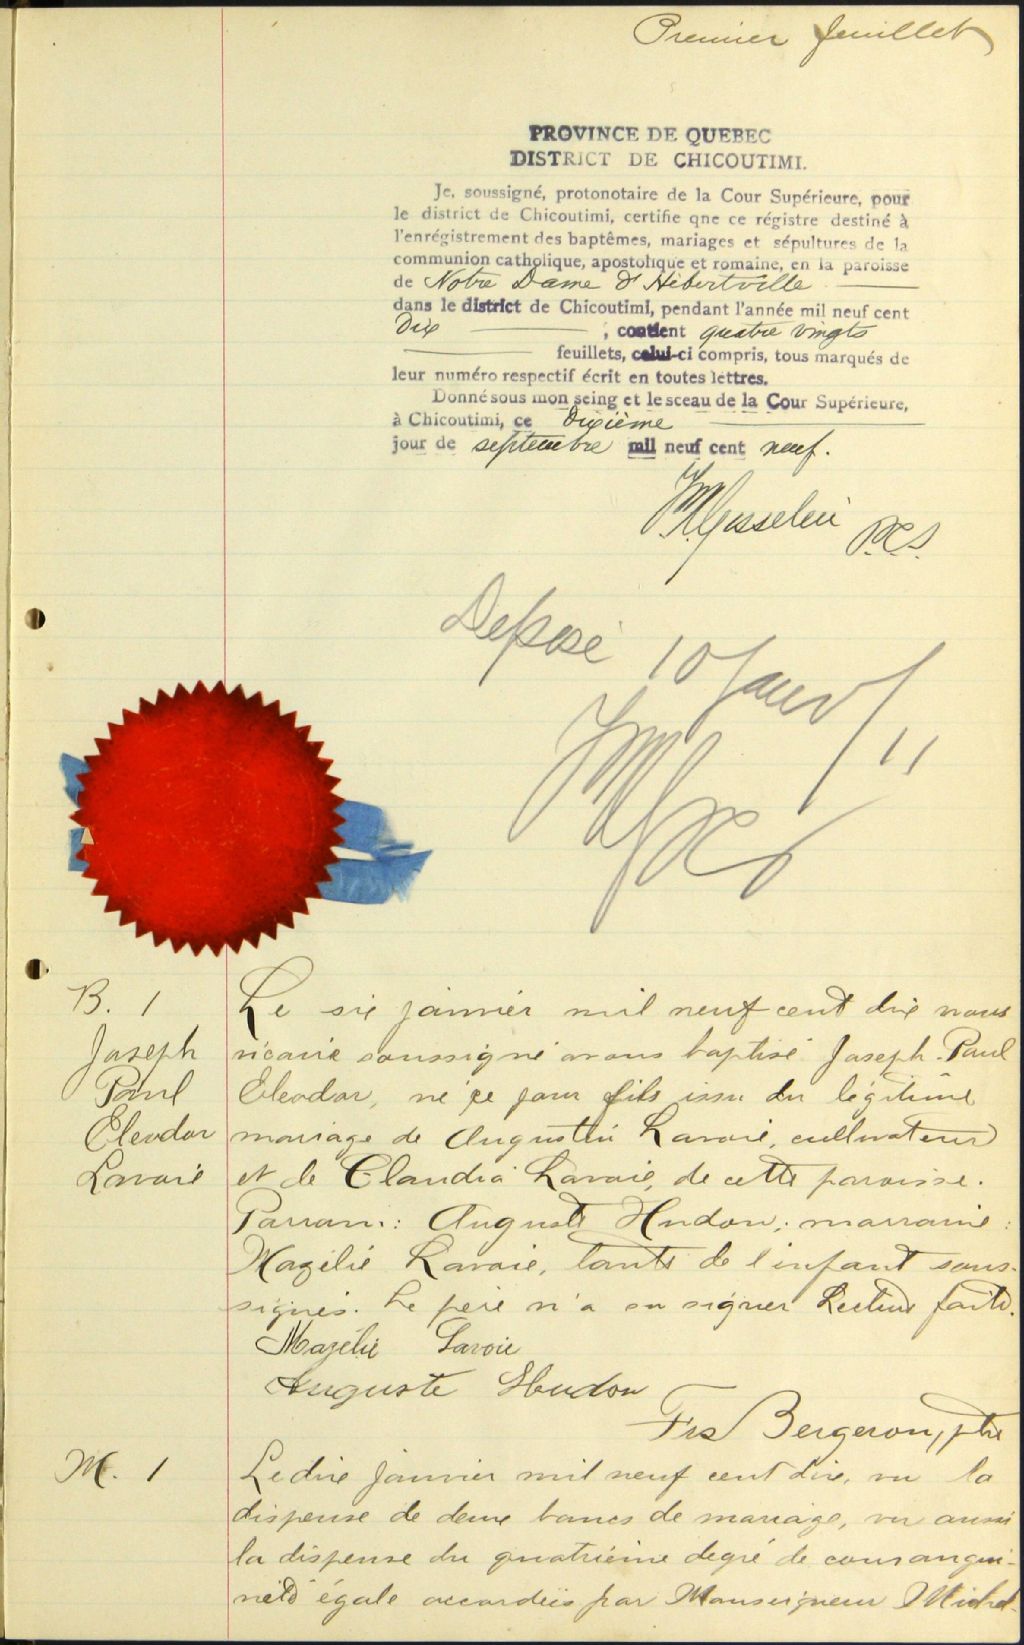 Premier feuillet
PROVINCE DE QUEBEC
DISTRICT DE CHICOUTIMI.
Je, soussigné, protonotaire de la Cour Supérieure, pour
le district de Chicoutimi, certifie qne ce régistre destiné à
l'enrégistrement des baptêmes, mariages et sépultures de la
communion catholique, apostolique et romaine, en la paroisse
de Notre Dame d'Hébertville
dans le district de Chicoutimi, pendant l'année mil neuf cent
Dix, contient quatre vingts
feuillets, celui-ci compris, tous marqués de
leur numéro respectif écrit en toutes lettres.
Donné sous mon seing et le sceau de la Cour Supérieure,
à Chicoutimi, ce Dixième
jour de septembre mil neuf cent neuf.
Gosselin P.C.S.
Déposé 10 Janv/11
B. 1
Joseph
Paul
Eleodor
Lavoie
Le six janvier mil neuf cent dix nous
vicaire soussigné avons baptisé Joseph-Paul
Eleodor, né ce jour fils issu du légitime
mariage de Augustin Lavoie, cultivateur
et de Claudia Lavoie, de cette paroisse.
Parrain: Auguste Hudon; marraine:
Mazélie Lavoie, tante de l'enfant sous-
signés. Le père n'a su signer Lecture faite.
Mazélie Lavoie
Auguste Hudon
Frs Bergeron, ptre
M. 1
Le dix janvier mil neuf cent dix, vu la
dispense de deux bancs de mariage, vu aussi
la dispense du quatrième degré de consangui-
nité égale accordées par Monseigneur Michel-